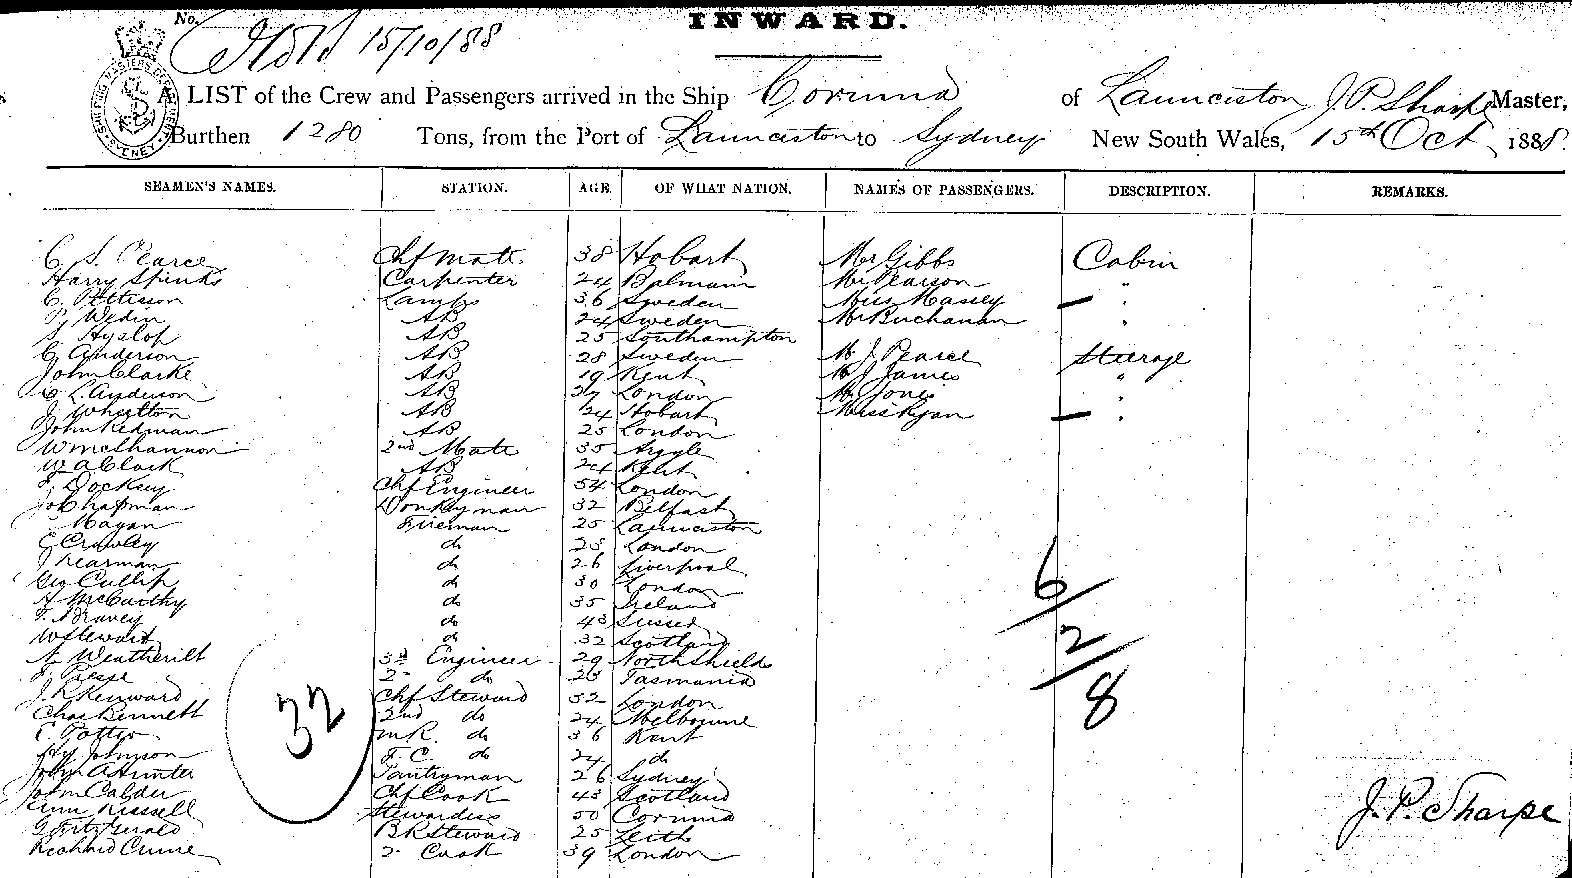 No.
INWARD.
15/10/88
A LIST of the Crew and Passengers arrived in the Ship Corinna of Launceston J. P. Sharpe Master,
Burthen 1280 Tons, from the Port of Launceston to Sydney New South Wales, 15th Oct 1888.
SEAMEN'S NAMES. STATION. AGE. OF WHAT NATION. NAMES OF PASSENGERS. DESCRIPTION. REMARKS.
C. S. Pearce Chf Mate 38 Hobart Mr Gibbs Cabin
Harry Spinks Carpenter 24 Balmain Mr Pearson "
C. Petterson Lamps 36 Sweden Miss Massey "
P. Wedin AB 24 Sweden Mr Buchanan "
S. Hyslop AB 25 Southampton
C. Anderson AB 28 Sweden Mr J. Pearce Steerage
John Clarke AB 19 Kent Mr J James "
C. L. Anderson AB 27 London Mr Jones "
J. Wheetton AB 24 Hobart Miss Ryan "
John Redman AB 25 London
W McShannon 2nd Mate 35 Argyle
W. A Clark AB 24 Kent
Dockey Chf Engineer 54 London
Jo Chapman Donkeyman 32 Belfast
Hayan Fireman 25 Launceston
Crawley do 28 London
J Learman do 26 Liverpool
Geo Cullip do 30 London
A McCarthy do 35 Ireland
T. Bravey do 43 Sussex
W Stewart do 32 Scotland
A. Weatherilt 3rd Engineer 29 North Shields
J. Piesse 2 do 28 Tasmania
J. R Kenward Chf Steward 32 London
Chas Bennett 2nd do 24 Melbourne
C. Potter M.R. do 36 Kent
Hy Johnson F. C. do 24 do
John A Hunter Pantryman 26 Sydney
John Calder Chf Cook 43 Scotland
Russell Stewardess 50 Corunna
G FitzGerald BR Steward 25 Leith
Richard Cunne 2 Cook 39 London
32
6/2/8
J. P. Sharpe